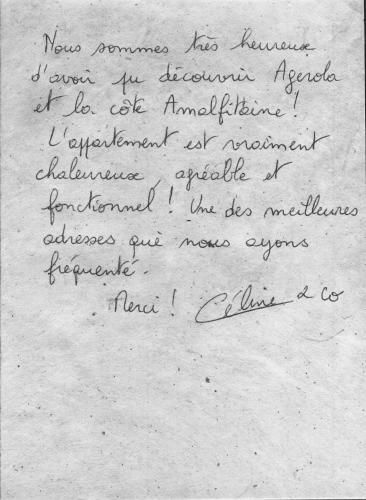 Nous sommes très heureux
d'avoir pu découvrir Agerola
et la côte Amalfitaine !
L'appartement est vraiment
chaleureux, agréable et
fonctionnel ! Une des meilleures
adresses que nous ayons
fréquenté.
Merci ! Céline & co